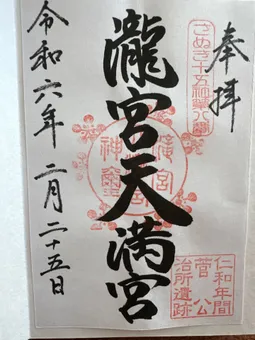 奉拝
さぬき十五社第八番
瀧宮天満宮
仁和年間
菅公
治所遺跡
令和六年 二月二十五日